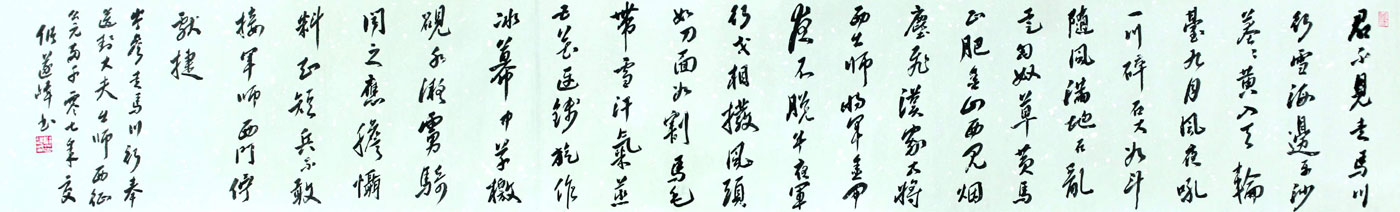 君不見走馬川
行雪海邊平沙
莽莽黃入天輪
臺九月風夜吼
一川碎石大如斗
隨風滿地石亂
走匈奴草黃馬
正肥金山西見烟
塵飛漢家大將
西出師將軍金甲
夜不脫半夜軍
行戈相撥風頭
如刀面如割馬毛
帶雪汗氣蒸
五花連錢旋作
冰幕中草檄
硯水凝虜騎
聞之應膽懾
料知短兵不敢
接軍師西門佇
獻捷
岑參走馬川行奉
送封大夫出師西征
公元兩千零七年夏
遂峰书